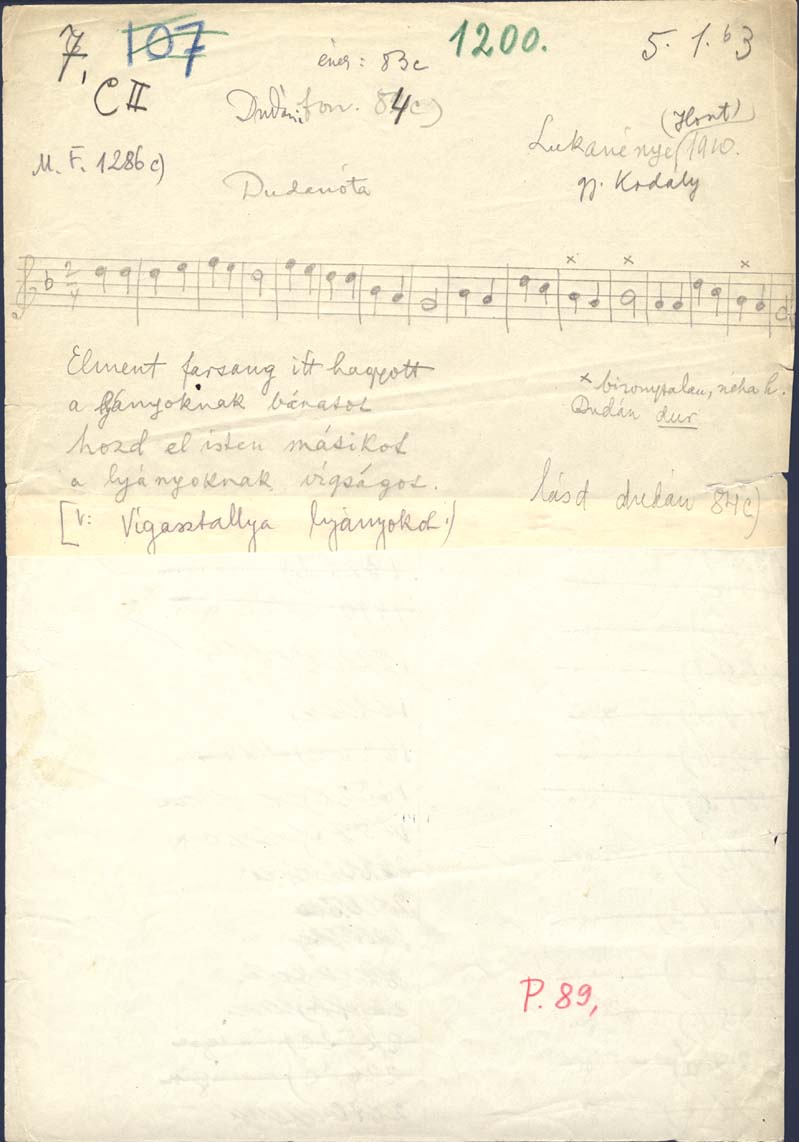 7, 107 1200. 5. 1. b3
C II
ének: 83c
Dudán: fon. 84c)
M. F. 1286 c)
Lukanénye (Hont) 1910.
gy. Kodály
Dudanóta
2/4
x x x
Elment farsang itt hagyott
a lyányoknak bánatot
hozd el isten másikot
a lyányoknak vígságot.
[V: Vigasztallya lyányokot.)
x bizonytalan, néha h.
Dudán dur
lásd dudán 84c)
P. 89,